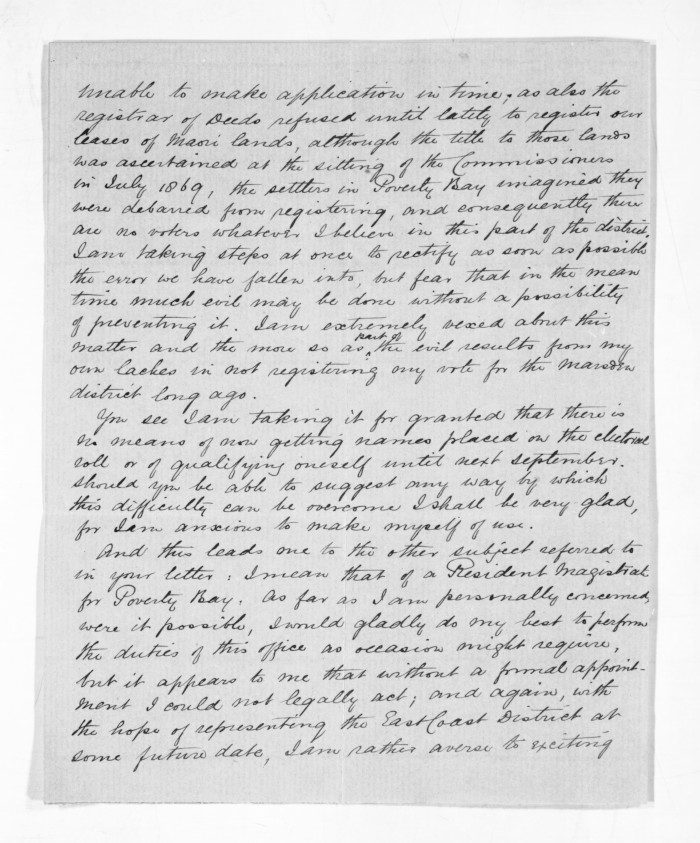 unable to make application in time; as also the
registrar of Deeds refused until lately to register our
leases of Maori lands, although the title to those lands
was ascertained at the sitting of the Commissioners
in July 1869, the settlers in Poverty Bay imagined they
were debarred from registering, and consequently there
are no voters whatever I believe in this part of the district.
I am taking steps at once to rectify as soon as possible
the error we have fallen into, but fear that in the mean
time much evil may be done without a possibility
of preventing it. I am extremely vexed about this
matter and the more so as part of the evil results from my
own laches in not registering my vote for the Marsden
district long ago.
You see I am taking it for granted that there is
no means of now getting names placed on the electoral
roll or of qualifying oneself until next september.
should you be able to suggest any way by which
this difficulty can be overcome I shall be very glad,
for I am anxious to make myself of use.
And this leads one to the other subject referred to
in your letter: I mean that of a Resident Magistrate
for Poverty Bay. As far as I am personally concerned,
were it possible, I would gladly do my best to perform
the duties of this office as occasion might require,
but it appears to me that without a formal appoint-
ment I could not legally act; and again, with
the hope of representing the East Coast District at
some future date, I am rather averse to exciting